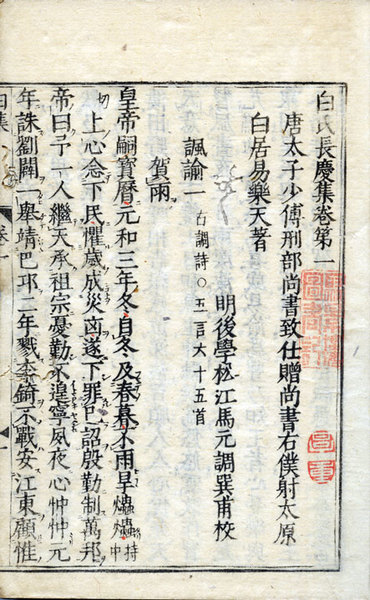 白氏長慶集卷第一
唐太子少傅刑部尚書致仕贈尚書右僕射太原
白居易樂天著
明後學松江馬元調巽甫校
諷諭一 古調詩○五言六十五首
賀雨
皇帝嗣寶曆元和三年冬自冬及春暮不雨旱爞爞持中
切上心念下民懼歲成災凶遂下罪己詔殷勤制萬邦
帝曰予一人繼天承祖宗憂勤不遑寧夙夜心忡忡元
年誅劉闢一舉靖巴邛二年戮李錡不戰安江東顧惟